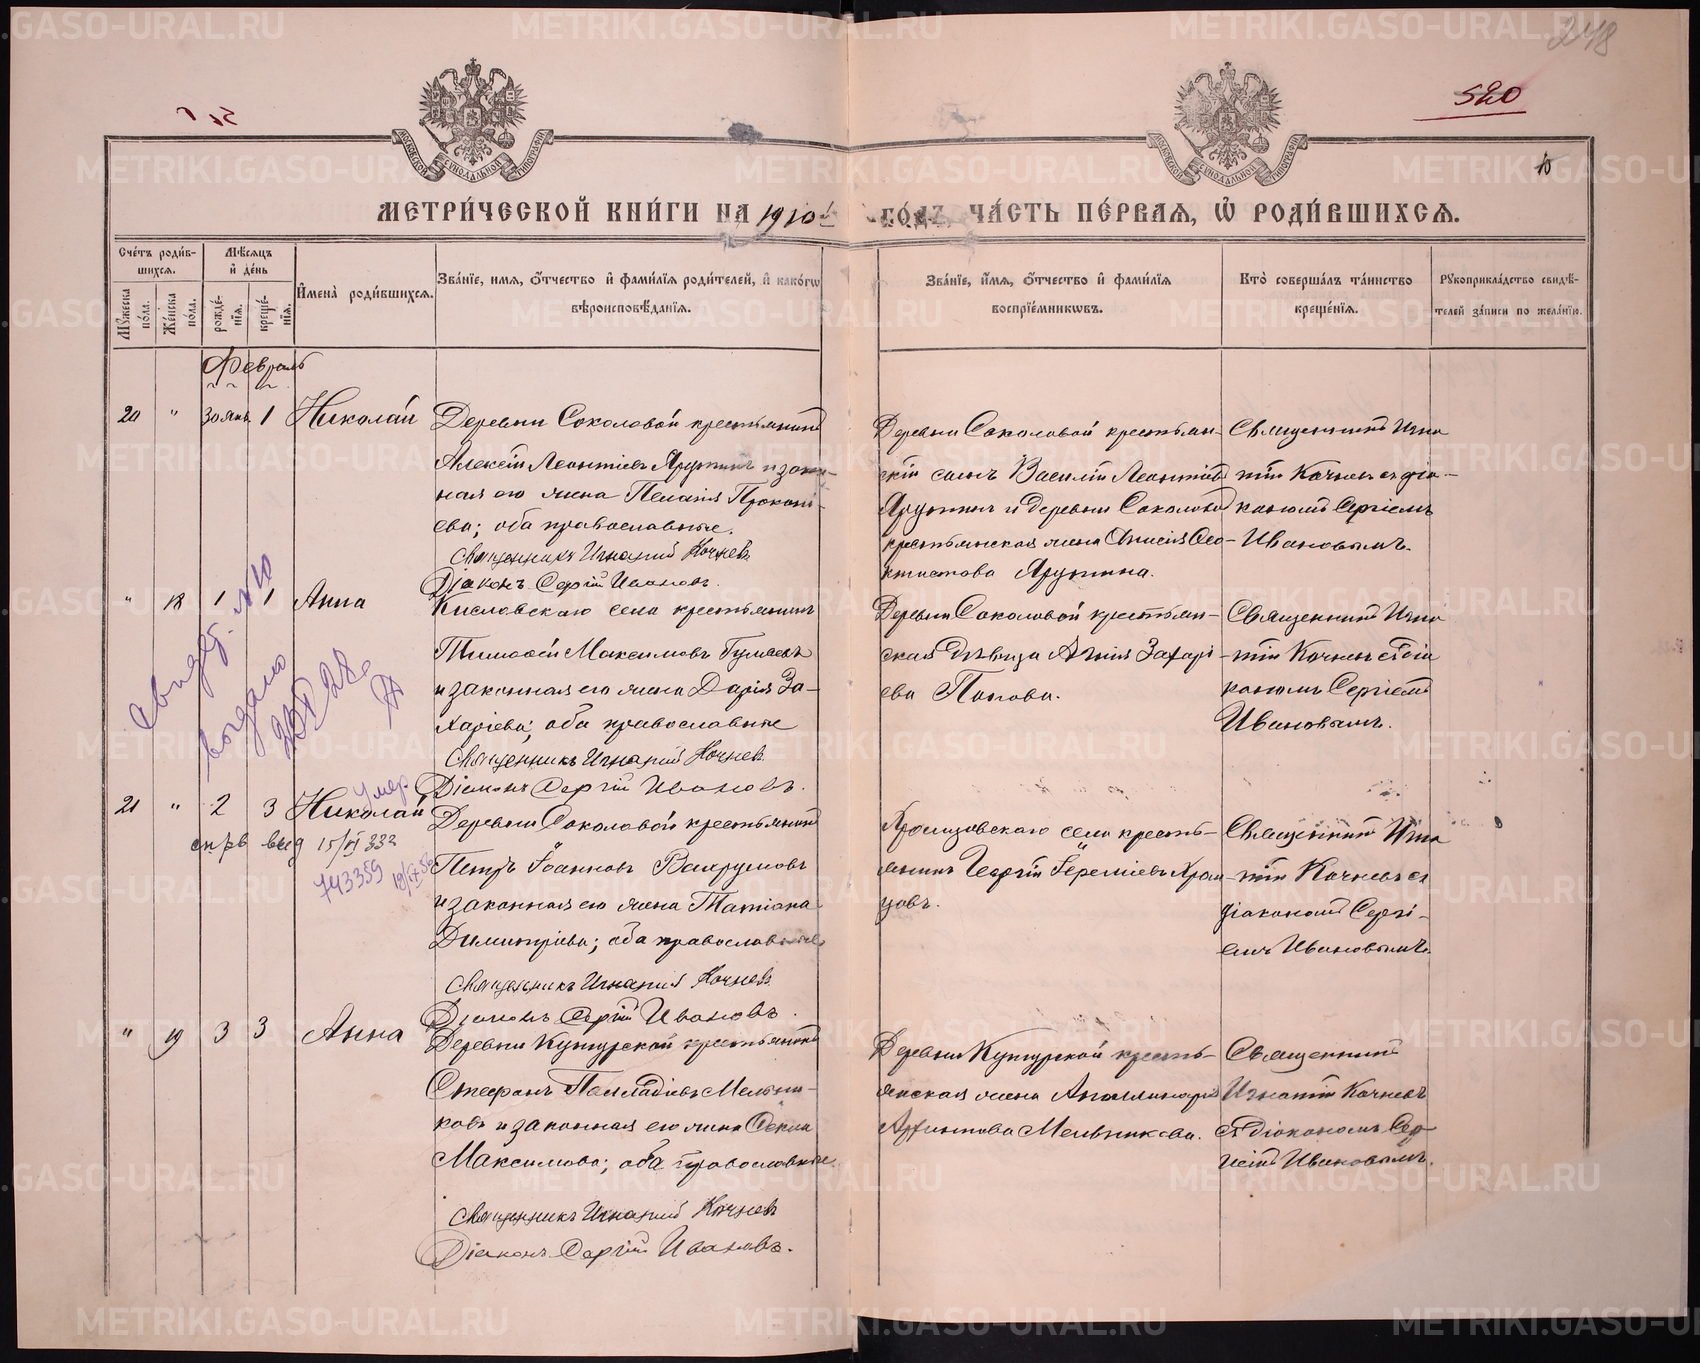 248
520
10
МОСКОВСКОЙ СѴНОДАЛЬНОЙ ТИПОГРАФІИ
МЕТРИ́ЧЕСКОЙ КНИ́ГИ НА 1910й ГО́ДЪ, ЧА́СТЬ ПЕ́РВАЯ, Ѽ РОДИ́ВШИХСЯ.
Сче́тъ роди́вшихся.
Мѣ́сяцъ и҆ де́нь
Мꙋ́жеска по́ла.
Же́нска по́ла.
рожде́нїѧ.
креще́нїѧ.
И҆мена̀ роди́вшихся.
Зва́нїе, и҆мя, ѻ҆́тчество и҆ фами́лїя роди́телей, и҆ како́гѡ
вѣроисповѣ́данїя.
Зва́нїе, и҆́мя, ѻ҆́тчество и҆ фами́лїя
воспрїе́мникѡвъ.
Кто̀ соверша́лъ та́инство
креще́нїя.
Рꙋкоприкла́дство свидѣ́телей за́писи по жела́нїю.
Февраль
20 " 30 янв. 1 Николай
Деревни Соколовой крестьянинъ
Алексій Леонтіевъ Ярутинъ и закон-
ная его жена Пелагія Прокопі-
ева; оба православные.
Священникъ Игнатій Кочневъ
Діаконъ Сергій Ивановъ.
Деревни Соколовой крестьян-
скій сынъ Василій Леонтіевъ
Ярутинъ и деревни Соколовой
крестьянская жена Анисія Фео-
ктистова Ярутина.
Священникъ Игна
тій Кочневъ съ діа-
кономъ Сергіемъ
Ивановымъ.
" 18 1 1 Анна
Кисловскаго села крестьянинъ
Тимофей Максимовъ
и законная его жена Дарія За-
харіева; оба православные
Священникъ Игнатій Кочневъ
Діаконъ Сергій Ивановъ.
Деревни Соколовой крестьян-
ская дѣвица Захарі-
ева Попова.
Священникъ Игна
тій Кочневъ съ діа
кономъ Сергіемъ
Ивановымъ.
свидѣт. №10
выдано
28
21 " 2 3 Николай
умер.
спрв выд 15/VI 332
743359
Деревни Соколовой крестьянинъ
Петръ Іоанновъ Вахрушовъ
и законная его жена Татіана
Димитріева; оба православные
Священникъ Игнатій Кочневъ
Діаконъ Сергій Ивановъ.
села кресть-
янинъ Георгій Іереміевъ Храм
цовъ.
Священникъ Игна
тій Кочневъ съ
діакономъ Сергі-
емъ Ивановымъ.
" 19 3 3 Анна
Деревни крестьянинъ
Стефанъ Палладіевъ Мельни-
ковъ и законная его жена Фекла
Максимова; оба православные.
Священникъ Игнатій Кочневъ
Діаконъ Сергій Ивановъ.
Деревни кресть-
янская жена Аполлинарія
Мельникова.
Священникъ
Игнатій Кочневъ
съ діакономъ Сер
гіемъ Ивановымъ.
METRIKI.GASO-URAL.RU